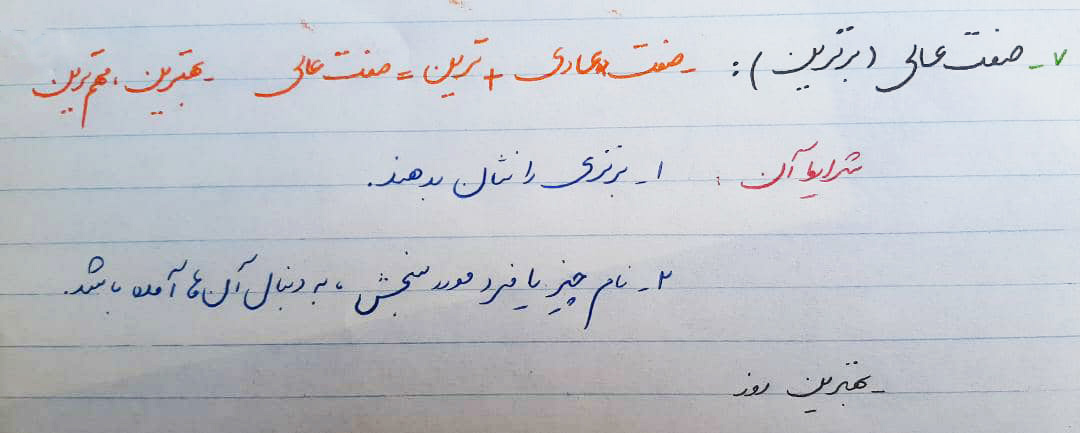 ۷- صفت عالی (برترین): - صفت عادی + ترین = صفت عالی - بهترین، مهم‌ترین
شرایط آن: ۱- برتری را نشان بدهند.
۲- نام چیز یا فرد مورد سنجش، به دنبال آن‌ها آمده باشد.
- بهترین روز